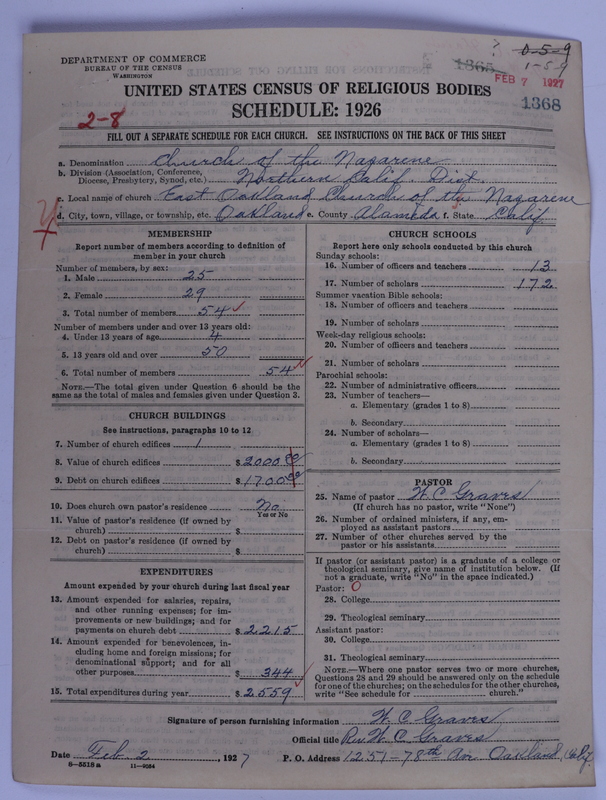 DEPARTMENT OF COMMERCE
BUREAU OF THE CENSUS
WASHINGTON
? 0-5-9
1-59
1365
FEB 7 1927
1368
UNITED STATES CENSUS OF RELIGIOUS BODIES
SCHEDULE: 1926
2-8
FILL OUT A SEPARATE SCHEDULE FOR EACH CHURCH. SEE INSTRUCTIONS ON THE BACK OF THIS SHEET
a. Denomination Church of the Nazarene
b. Division (Association, Conference, Diocese, Presbytery, Synod, etc.) Northern Calif. Dist.
c. Local name of church East Oakland Church of the Nazarene
d. City, town, village, or township, etc. Oakland e. County Alameda f. State Calif
MEMBERSHIP
Report number of members according to definition of
member in your church
Number of members, by sex:
1. Male 25
2. Female 29
3. Total number of members 54
Number of members under and over 13 years old:
4. Under 13 years of age 4
5. 13 years old and over 50
6. Total number of members 54
NOTE.—The total given under Question 6 should be the
same as the total of males and females given under Question 3.
CHURCH BUILDINGS
See instructions, paragraphs 10 to 12
7. Number of church edifices 1
8. Value of church edifices $ 2000.00
9. Debt on church edifices $ 1700.00
10. Does church own pastor's residence No
Yes or No
11. Value of pastor's residence (if owned by
church) $
12. Debt on pastor's residence (if owned by
church) $
EXPENDITURES
Amount expended by your church during last fiscal year
13. Amount expended for salaries, repairs,
and other running expenses; for im-
provements or new buildings; and for
payments on church debt $ 2215
14. Amount expended for benevolences, in-
cluding home and foreign missions; for
denominational support; and for all
other purposes $ 344
15. Total expenditures during year $ 2559
CHURCH SCHOOLS
Report here only schools conducted by this church
Sunday schools:
16. Number of officers and teachers 13
17. Number of scholars 172
Summer vacation Bible schools:
18. Number of officers and teachers
19. Number of scholars
Week-day religious schools:
20. Number of officers and teachers
21. Number of scholars
Parochial schools:
22. Number of administrative officers
23. Number of teachers—
a. Elementary (grades 1 to 8)
b. Secondary
24. Number of scholars—
a. Elementary (grades 1 to 8)
b. Secondary
PASTOR
25. Name of pastor W C Graves
(If church has no pastor, write "None")
26. Number of ordained ministers, if any, em-
ployed as assistant pastors
27. Number of other churches served by the
pastor or his assistants
If pastor (or assistant pastor) is a graduate of a college or
theological seminary, give name of institution below. (If
not a graduate, write "No" in the space indicated.)
Pastor: O
28. College
29. Theological seminary
Assistant pastor:
30. College
31. Theological seminary
NOTE.—Where one pastor serves two or more churches,
Questions 28 and 29 should be answered only on the schedule
for one of the churches; on the schedules for the other churches,
write "See schedule for church."
Signature of person furnishing information W. C. Graves
Official title Rev. W. C. Graves
Date Feb. 2, 1927 P. O. Address 1251-78th Av. Oakland, Calif.
8-5518 a 11-9554